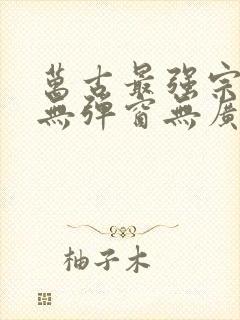 萬古最强宗
無彈窗無廣
柚子木